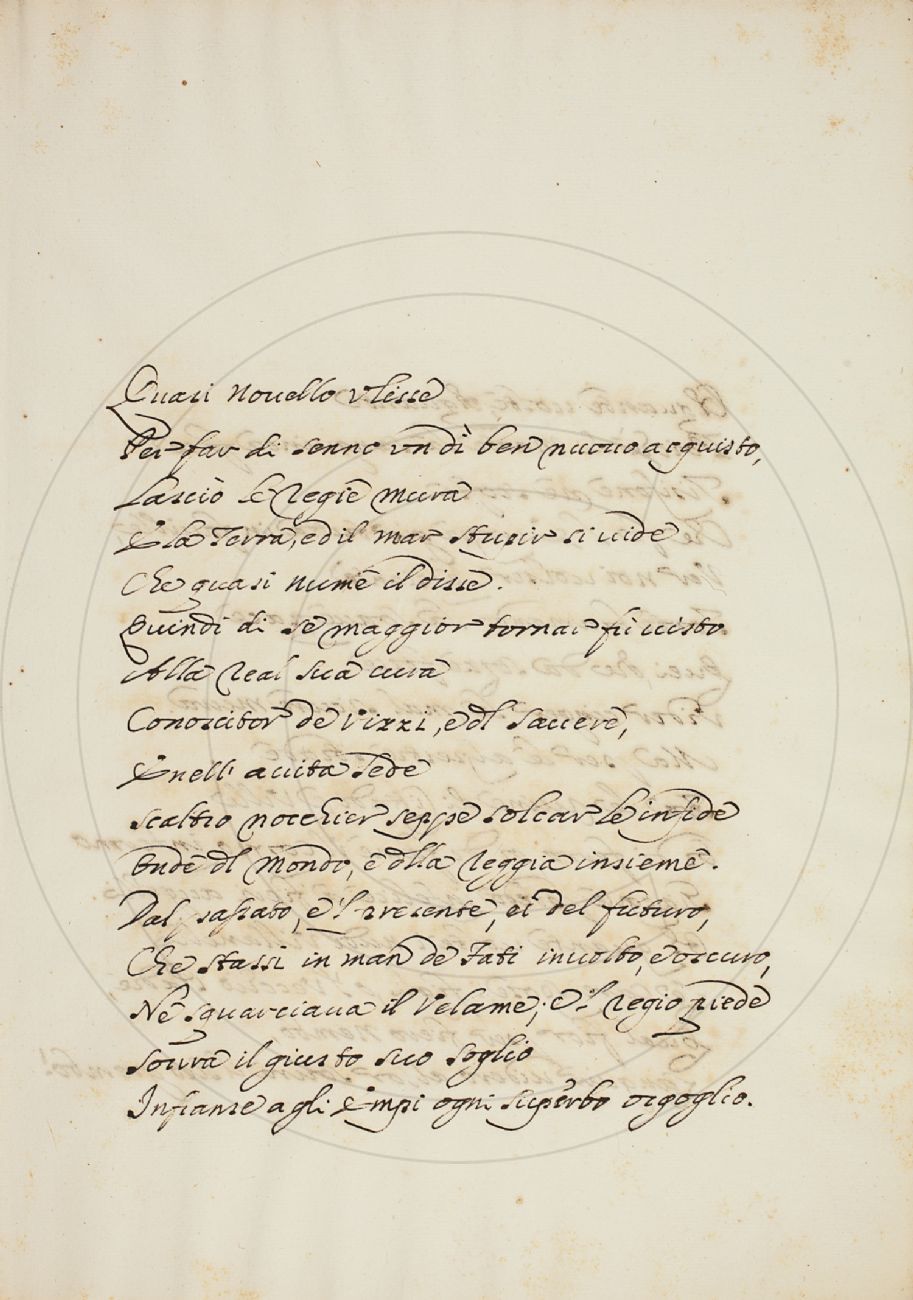 Quasi nouello vlisse
Per far di senno vn dì ben nuouo acquisto,
Lasciò le regie mura
E la Terra, ed il mar stupir si uide
Che quasi nume il disse.
Quindi di se maggior tornar fù uisto
Alla real sua cura
Conoscitor de Vizzi, e dl sauere,
E nell' auita sede
scaltro nocchier seppe solcar le infide
Onde dl Mondo, e dlla reggia insieme.
Dal passato, e 'l presente, ei del futuro,
Che stassi in man de Fati inuolto, e oscuro,
Ne squarciaua il Velame; e 'l regio piede
soura il giusto suo soglio
Infranse agli Empi ogni superbo orgoglio.